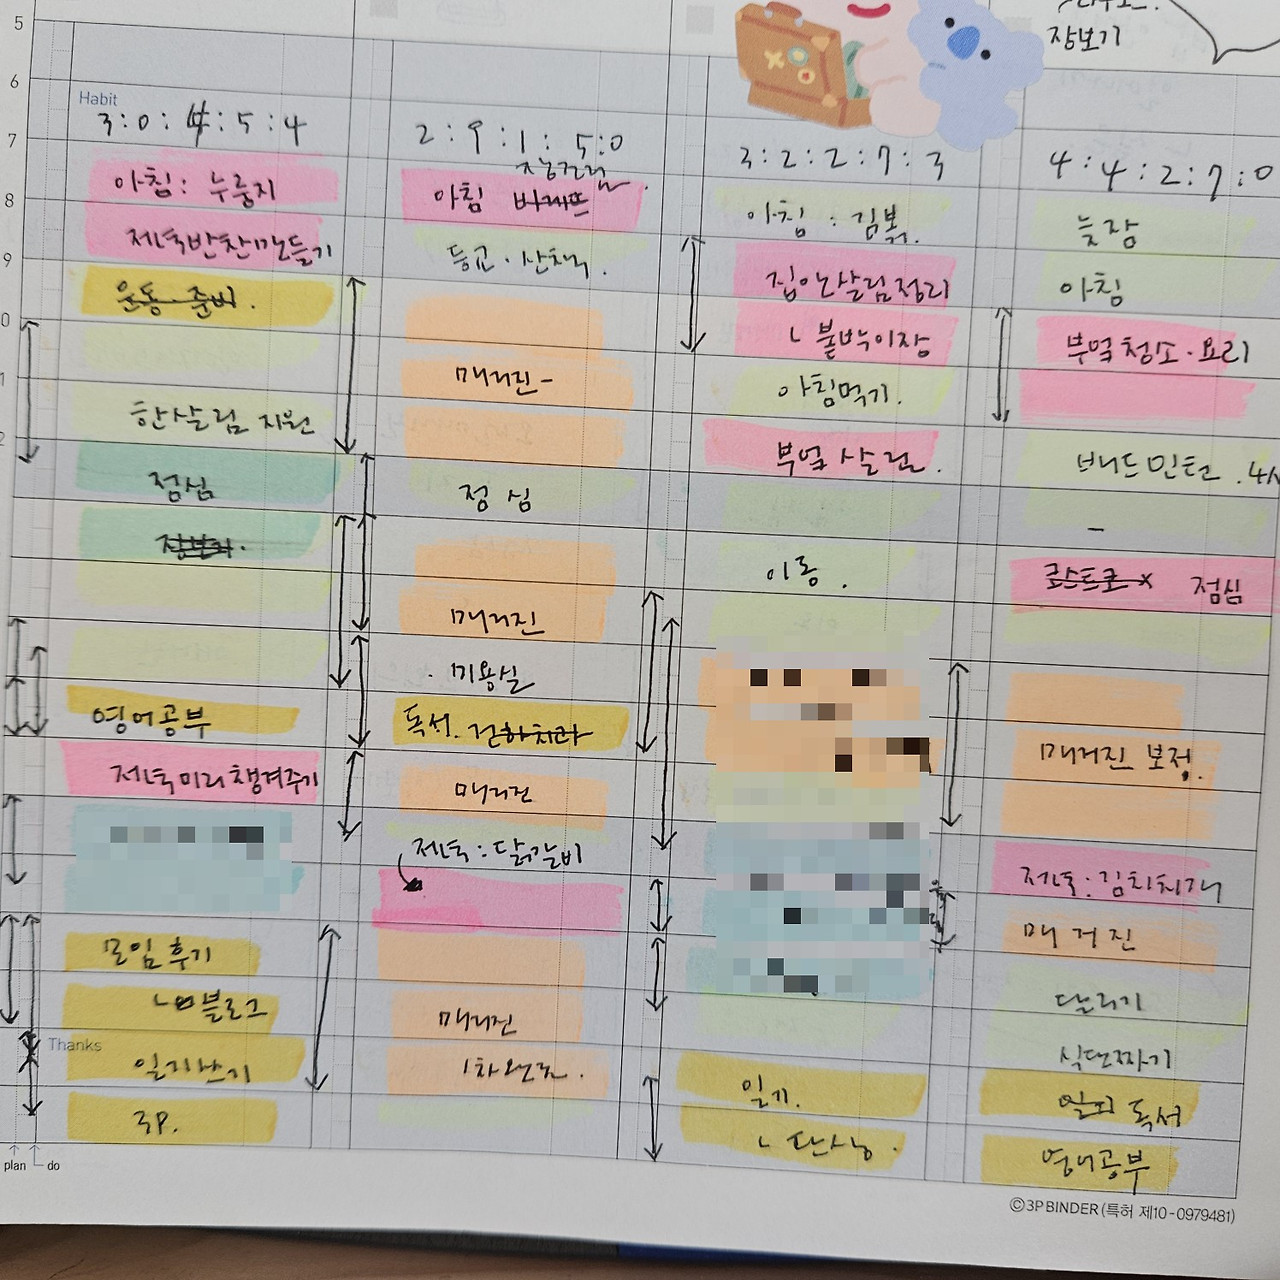 장보기
5
6
7
8
9
0
1
2
Habit
3:0:4:5:4
아침: 누룽지
제녁반찬만들기
운동·준비.
한살림 지원
점심
영어공부
제녁미리챙겨주기
모임후기
ㄴ블로그
Thanks
일기쓰기
3P.
plan
do
2:9:1:5:0
아침
등교·산책.
매거진-
점심
매거진
·미용실
독서. 전하치과
매거진
제녁:닭갈비
매거진
1차완료.
3:2:2:7:3
아침:김볶.
집안살림정리
ㄴ붙박이장
아침먹기.
부엌살림.
이동.
일기.
ㄴ단상.
4:4:2:7:0
늦잠
아침
부엌청소·요리
배드민턴.4시
-
코스트코 x 점심
매거진 보정.
제녁:김치찌개
매거진
달리기
식단짜기
독서
영어공부
©3PBINDER(특허 제10-0979481)